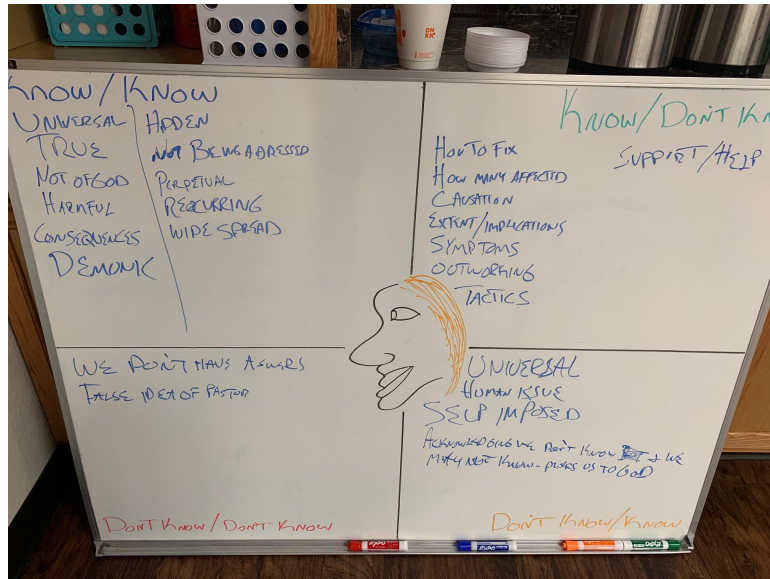 KNOW/KNOW
UNIVERSAL
TRUE
NOT OF GOD
HARMFUL
CONSEQUENCES
DEMONIC
HIDDEN
NOT BEING ADRESSED
PERPETUAL
REOCURRING
WIDE SPREAD
KNOW/DON'T KN
HOW TO FIX
HOW MANY AFFECTED
CAUSATION
EXTENT/IMPLICATIONS
SYMPTOMS
OUTWORKING
TACTICS
SUPPORT/HELP
WE DON'T HAVE ASWERS
FALSE IDEA OF PASTOR
DON'T KNOW/DON'T KNOW
UNIVERSAL
HUMAN ISSUE
SELF IMPOSED
ACKNOWLEDGING WE DON'T KNOW + WE
MAY NOT KNOW - PUSHES US TO GOD
DON'T KNOW/KNOW
DNKN
EXPO
EXPO
EXPO
EXPO